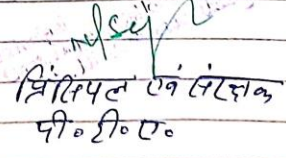 प्रिंसिपल एवं संरक्षक
पी॰टी॰ए॰